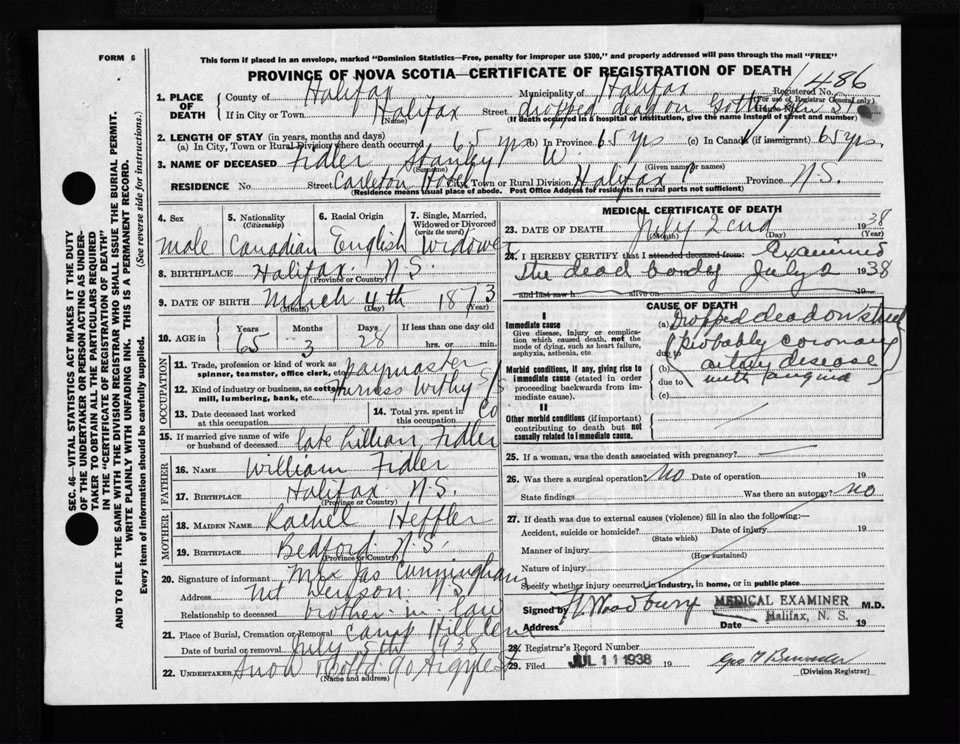 FORM 6
This form if placed in an envelope, marked "Dominion Statistics—Free, penalty for improper use $300," and properly addressed will pass through the mail "FREE"
PROVINCE OF NOVA SCOTIA—CERTIFICATE OF REGISTRATION OF DEATH
1. PLACE OF DEATH County of Halifax Municipality of Halifax Registered No. 486
(For use of Registrar General only)
If in City or Town Halifax Street dropped dead on Gottingen St
(Name) (If death occurred in a hospital or institution, give the name instead of street and number)
2. LENGTH OF STAY (in years, months and days)
(a) In City, Town or Rural Division where death occurred 65 yrs (b) In Province 65 yrs (c) In Canada (if immigrant) 65 yrs.
3. NAME OF DECEASED Fidler Stanley W.
(Surname) (Given name or names)
RESIDENCE No Street Carleton Hotel Town or Rural Division Halifax Province N.S.
(Residence means usual place of abode. Post Office Address for residents in rural parts not sufficient)
4. Sex male
5. Nationality (Citizenship) Canadian
6. Racial Origin English
7. Single, Married, Widowed or Divorced (write the word) Widower
8. BIRTHPLACE Halifax N.S.
(Province or Country)
9. DATE OF BIRTH March 4th 1873
(Month) (Day) (Year)
10. AGE in Years 65 Months 3 Days 28 If less than one day old hrs. or min.
OCCUPATION
11. Trade, profession or kind of work as spinner, teamster, office clerk, etc. Paymaster
12. Kind of industry or business, as cotton mill, lumbering, bank, etc. Furness Withy S/S Co
13. Date deceased last worked at this occupation
14. Total yrs. spent in this occupation
15. If married give name of wife or husband of deceased late Lillian Fidler
FATHER
16. NAME William Fidler
17. BIRTHPLACE Halifax N.S.
(Province or Country)
MOTHER
18. MAIDEN NAME Rachel Heffler
19. BIRTHPLACE Bedford N.S.
(Province or Country)
20. Signature of informant Jas Cunningham
Address Mt Denson N.S.
Relationship to deceased brother in law
21. Place of Burial, Cremation or Removal Camp Hill Cem
Date of burial or removal July 5th 1938
22. UNDERTAKER Snow & Co Ltd 90 Argyle St
(Name and address)
MEDICAL CERTIFICATE OF DEATH
23. DATE OF DEATH July 2cnd 1938
(Month) (Day) (Year)
24. I HEREBY CERTIFY that I attended deceased from: Examined
the dead body July 2 1938
and last saw h alive on 19
CAUSE OF DEATH
I
Immediate cause
Give disease, injury or complication which caused death, not the mode of dying, such as heart failure, asphyxia, asthenia, etc
Morbid conditions, if any, giving rise to immediate cause (stated in order proceeding backwards from immediate cause).
II
Other morbid conditions (if important) contributing to death but not causally related to immediate cause.
(a) Dropped dead on street
due to (Probably coronary
(b) artery disease
due to with angina)
(c)
25. If a woman, was the death associated with pregnancy?
26. Was there a surgical operation? No Date of operation 19
State findings Was there an autopsy? no
27. If death was due to external causes (violence) fill in also the following:—
Accident, suicide or homicide? Date of injury 19
(State which)
Manner of injury
(How sustained)
Nature of injury
Specify whether injury occurred in industry, in home, or in public place
Signed by Woodbury MEDICAL EXAMINER M.D.
Address Halifax, N. S. Date 19
28. Registrar's Record Number
29. Filed JUL 11 1938 19
(Division Registrar)
SEC. 46—VITAL STATISTICS ACT MAKES IT THE DUTY
OF THE UNDERTAKER OR PERSON ACTING AS UNDERTAKER TO OBTAIN ALL THE PARTICULARS REQUIRED
IN THE "CERTIFICATE OF REGISTRATION OF DEATH"
AND TO FILE THE SAME WITH THE DIVISION REGISTRAR WHO SHALL ISSUE THE BURIAL PERMIT.
WRITE PLAINLY WITH UNFADING INK. THIS IS A PERMANENT RECORD.
Every item of information should be carefully supplied. (See reverse side for instructions.)